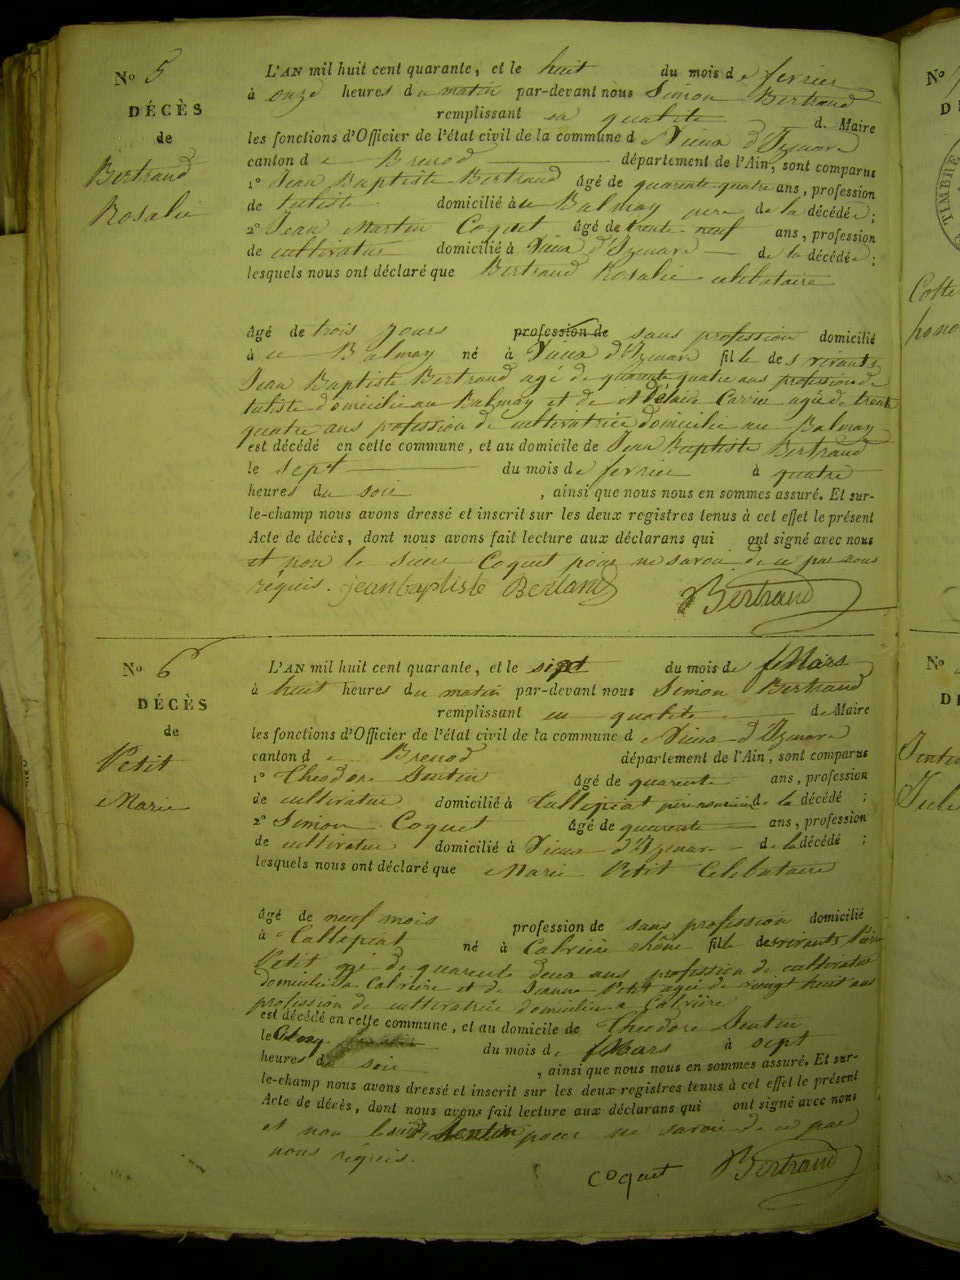 No 5
DÉCÈS
de
Bertrand
Rosalie
L'AN mil huit cent quarante, et le huit du mois de fevrier
à onze heures du matin par-devant nous Simon Bertrand
remplissant en qualité de Maire
les fonctions d'Officier de l'état civil de la commune de Vieux d'Izenave
canton de Brenod département de l'Ain, sont comparus
1° Jean Baptiste Bertrand âgé de quarente quatre ans, profession
de domicilié au Balmay pere de la décédée;
2° Jean Martin Coquet âgé de trente neuf ans, profession
de cultivateur domicilié à Vieux d'Izenave de la décédée;
lesquels nous ont déclaré que Bertrand Rosalie celibataire
âgé de trois jours profession de sans profession domicilié
à u Balmay né à Vieux d'Izenave fille des vivants
Jean Baptiste Bertrand agé de quarente quatre ans profession de
domicilié au Balmay et de Carrier agée de trente
quatre ans profession de cultivatrice domicilié au Balmay
est décédé en cette commune, et au domicile de Jean Baptiste Bertrand
le sept du mois de fevrier à quatre
heures du soir , ainsi que nous nous en sommes assuré. Et sur-
le-champ nous avons dressé et inscrit sur les deux registres tenus à cet effet le présent
Acte de décès, dont nous avons fait lecture aux déclarans qui ont signé avec nous
et non le sieur Coquet pour ne savoir de ce par nous
requis. jean baptiste Bertrand Bertrand
No 6
DÉCÈS
de
Petit
Marie
L'AN mil huit cent quarante, et le sept du mois de Mars
à huit heures du matin par-devant nous Simon Bertrand
remplissant en qualité de Maire
les fonctions d'Officier de l'état civil de la commune de Vieux d'Izenave
canton de Brenod département de l'Ain, sont comparus
1° Theodore âgé de quarente ans, profession
de cultivateur domicilié à pere nouricier de la décédé ;
2° Simon Coquet âgé de quarente ans, profession
de cultivateur domicilié à Vieux d'Izenave de la décédé ;
lesquels nous ont déclaré que Marie Petit Celibataire
âgé de neuf mois profession de sans profession domicilié
à né à rhône fille des vivants
Petit agé de quarente deux ans profession de cultivateur
domicilié a et de Jeanne Petit agée de vingt huit ans
profession de cultivatrice domicilié a
est décédé en cette commune, et au domicile de Theodore
le du mois de Mars à sept
heures du soir , ainsi que nous nous en sommes assuré. Et sur-
le-champ nous avons dressé et inscrit sur les deux registres tenus à cet effet le présent
Acte de décès, dont nous avons fait lecture aux déclarans qui ont signé avec nous
et non le pour ne savoir de ce par
nous requis.
Coquet Bertrand
No
TIMBRE
No